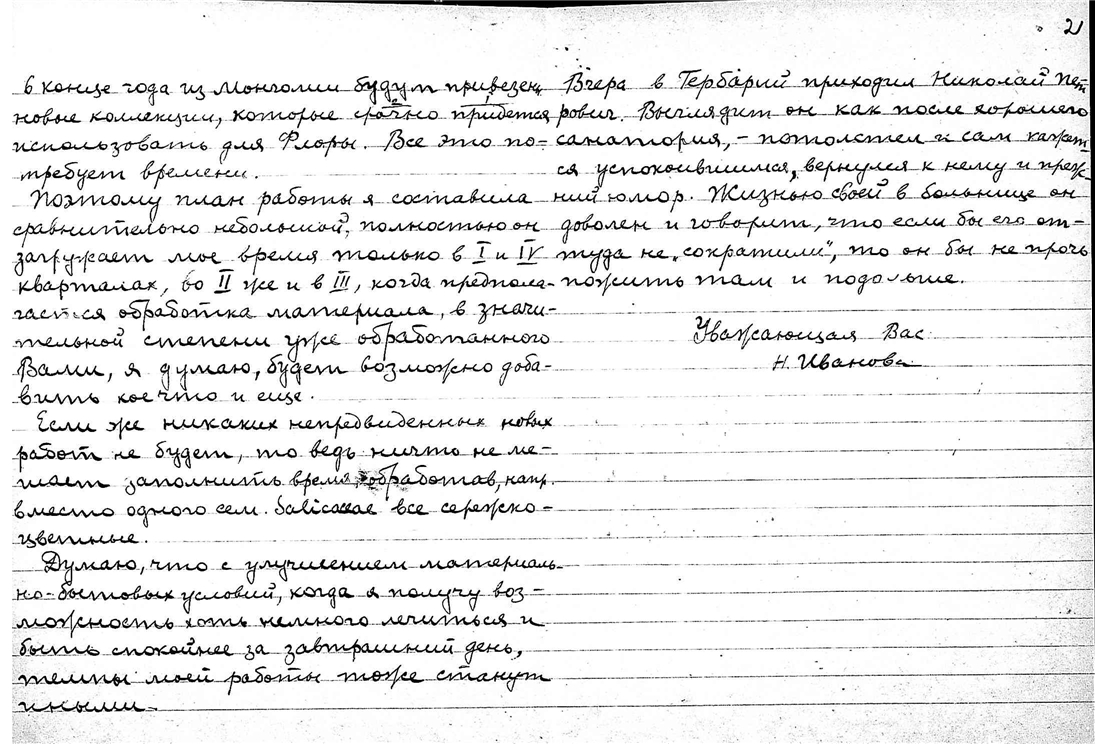 2
в конце года из Монголии будут привезены
новые коллекции, которые срочно придется
использовать для Флоры. Все это по-
требует времени.
Поэтому план работы я составила
сравнительно небольшой, полностью он
загружает мое время только в I и IV
кварталах, во II же и в III, когда предпола-
гается обработка материала, в значи-
тельной степени уже обработанного
Вами, я думаю, будет возможно доба-
вить кое что и еще.
Если же никаких непредвиденных новых
работ не будет, то ведь ничто не ме-
шает заполнить время, обработав, напр.
вместо одного сем. Salicaceae все сережко-
цветные.
Думаю, что с улучшением материаль-
но-бытовых условий, когда я получу воз-
можность хоть немного лечиться и
быть спокойнее за завтрашний день,
темпы моей работы тоже станут
иными.
Вчера в Гербарий приходил Николай Пет-
рович. Выглядит он как после хорошего
санатория, – потолстел и сам кажет-
ся успокоившимся, вернулся к нему и преж-
ний юмор. Жизнью своей в больнице он
доволен и говорит, что если бы его от-
туда не „сократили", то он бы не прочь
пожить там и подольше.
Уважающая Вас
Н. Иванова